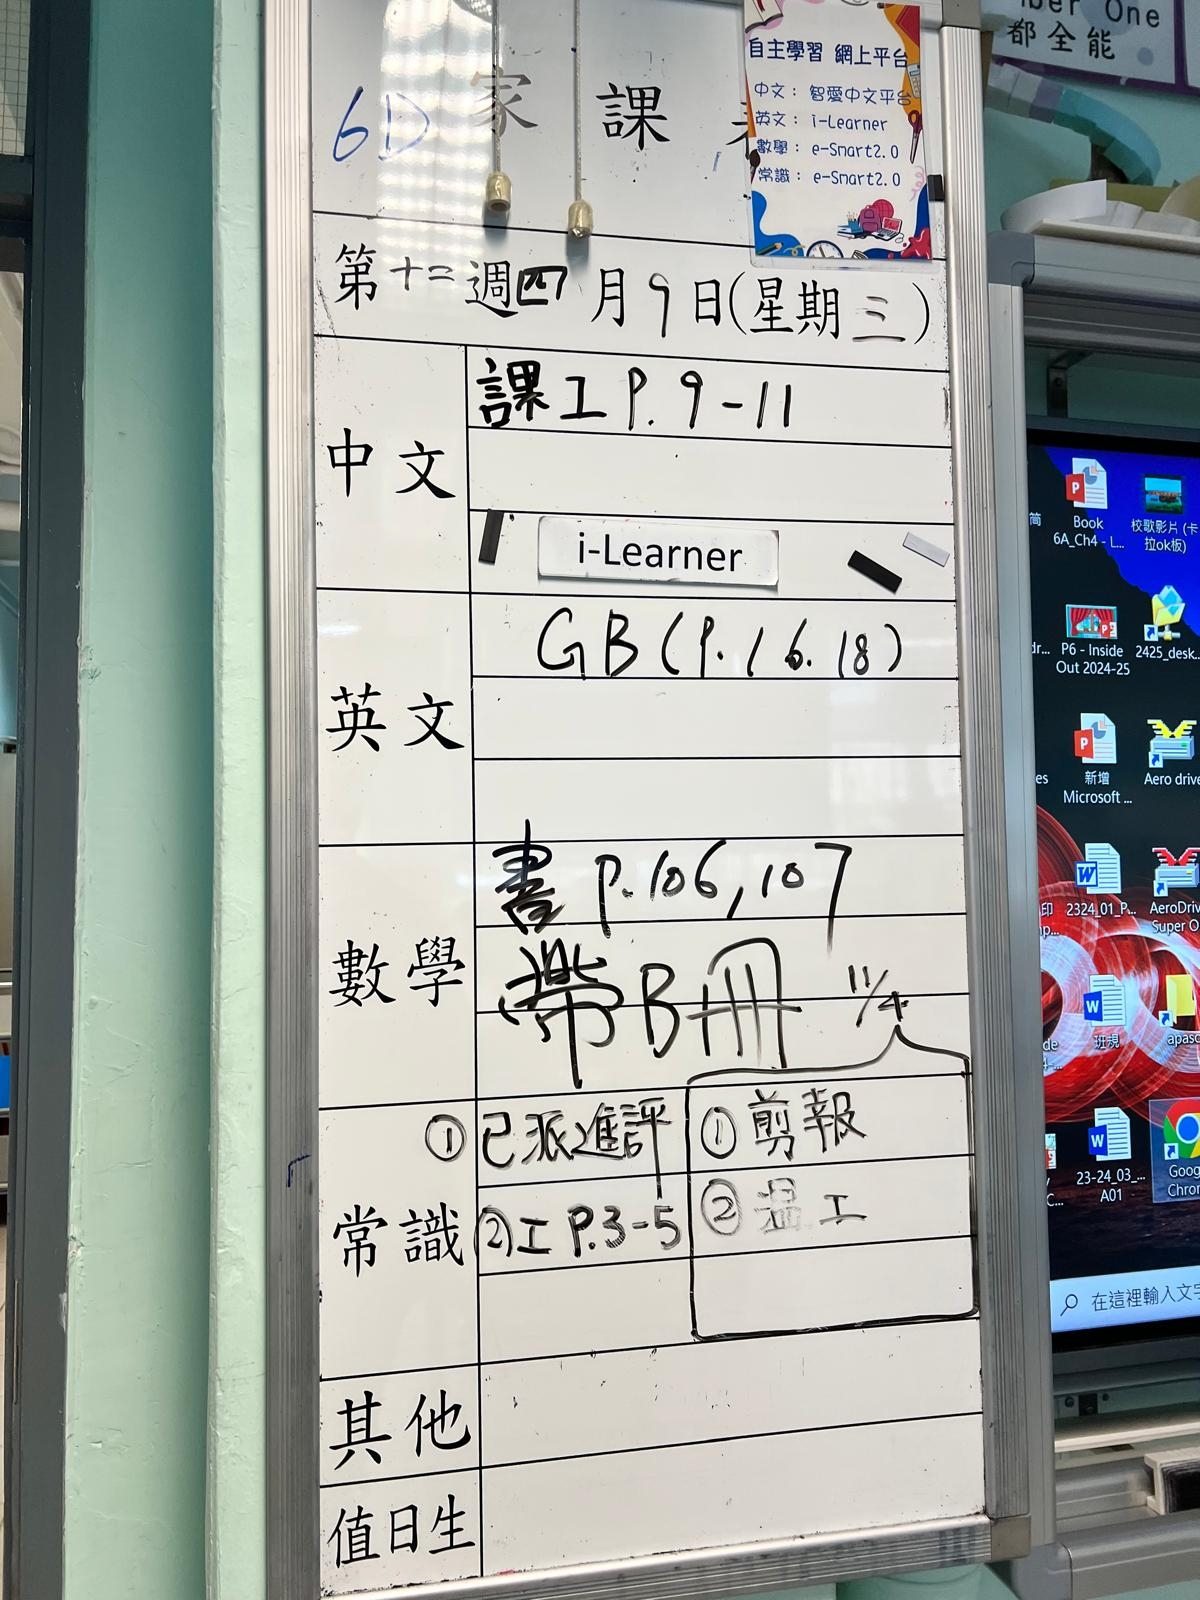 6D 家 課
自主學習 網上平台
中文： 智愛中文平台
英文： i-Learner
數學： e-Smart2.0
常識： e-Smart2.0
第十二週四月9日(星期三)
中文
課工P.9-11
i-Learner
英文
GB(P.16.18)
數學
書 P.106,107
帶B冊 11/4
常識
①已派進評
②工 P.3-5
①剪報
②溫工
其他
值日生
ber One
都全能
Book
6A_Ch4 - L...
校歌影片 (卡
拉ok板)
P6 - Inside
Out 2024-25
2425_desk...
新增
Microsoft ...
Aero drive
2324_01_P...
AeroDriv
Super O
班規
apasc
23-24_03_...
A01
Goog
Chron
在這裡輸入文字